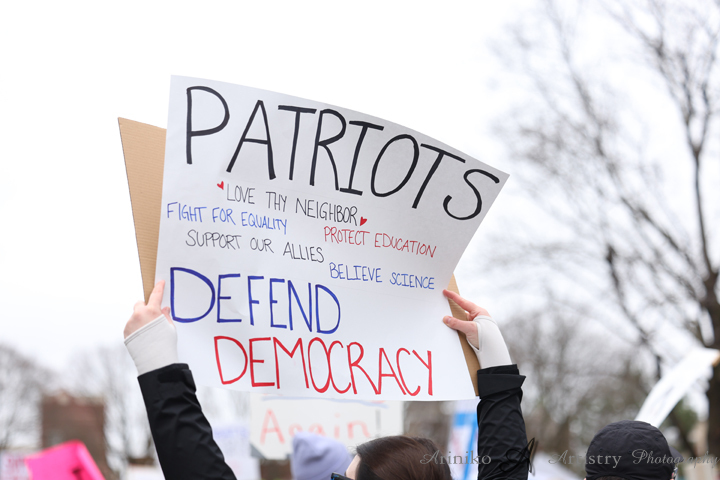 PATRIOTS
LOVE THY NEIGHBOR
FIGHT FOR EQUALITY
PROTECT EDUCATION
SUPPORT OUR ALLIES
BELIEVE SCIENCE
DEFEND
DEMOCRACY
Again
Ariniko Artistry Photography